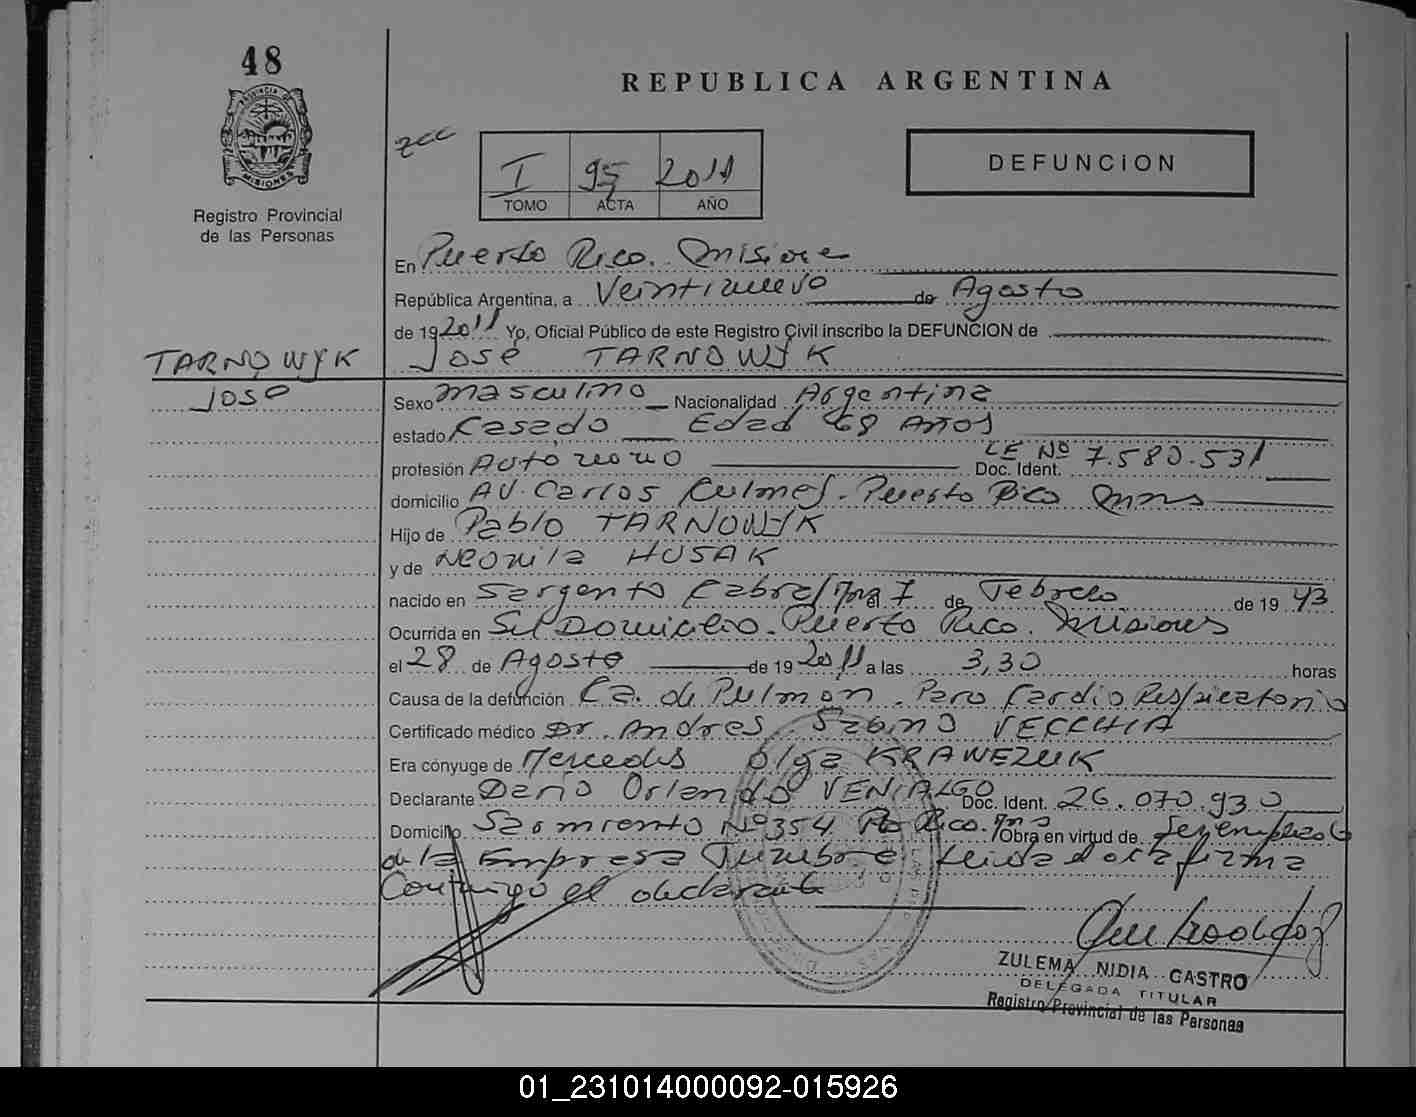 48
PROVINCIA DE
MISIONES
Registro Provincial
de las Personas
REPUBLICA ARGENTINA
DEFUNCION
I 95 2011
TOMO ACTA AÑO
En Puerto Rico. Misiones
República Argentina, a Veintinuevo de Agosto
de 19 2011 Yo, Oficial Público de este Registro Civil inscribo la DEFUNCION de
TARNOWYK José TARNOWYK
José
Sexo masculino Nacionalidad Argentina
estado Casado Edad 68 Años
profesión Autonomo Doc. Ident. LE Nº 7.580.531
domicilio AV. Carlos Culmey. Puerto Rico Mnes
Hijo de Pablo TARNOWYK
y de Neonila HUSAK
nacido en Sargento Cabral Mnes el 7 de Febrero de 19 43
Ocurrida en Su Domicilio. Puerto Rico. Misiones
el 28 de Agosto de 19 2011 a las 3,30 horas
Causa de la defunción Ca. de Pulmon. Paro Cardio Respiratorio
Certificado médico Dr. Andres Sabino VECCHIA
Era cónyuge de Mercedes Olga KRAWEZUK
Declarante Dario Orlando VENIALGO Doc. Ident. 26.070.930
Domicilio Sarmiento Nº 354 Pto Rico. Mns Obra en virtud de Ser empleado
de la Empresa Funebre Leida el acta firma
Conmigo el declarante
ZULEMA NIDIA CASTRO
DELEGADA TITULAR
Registro Provincial de las Personas
01_231014000092-015926